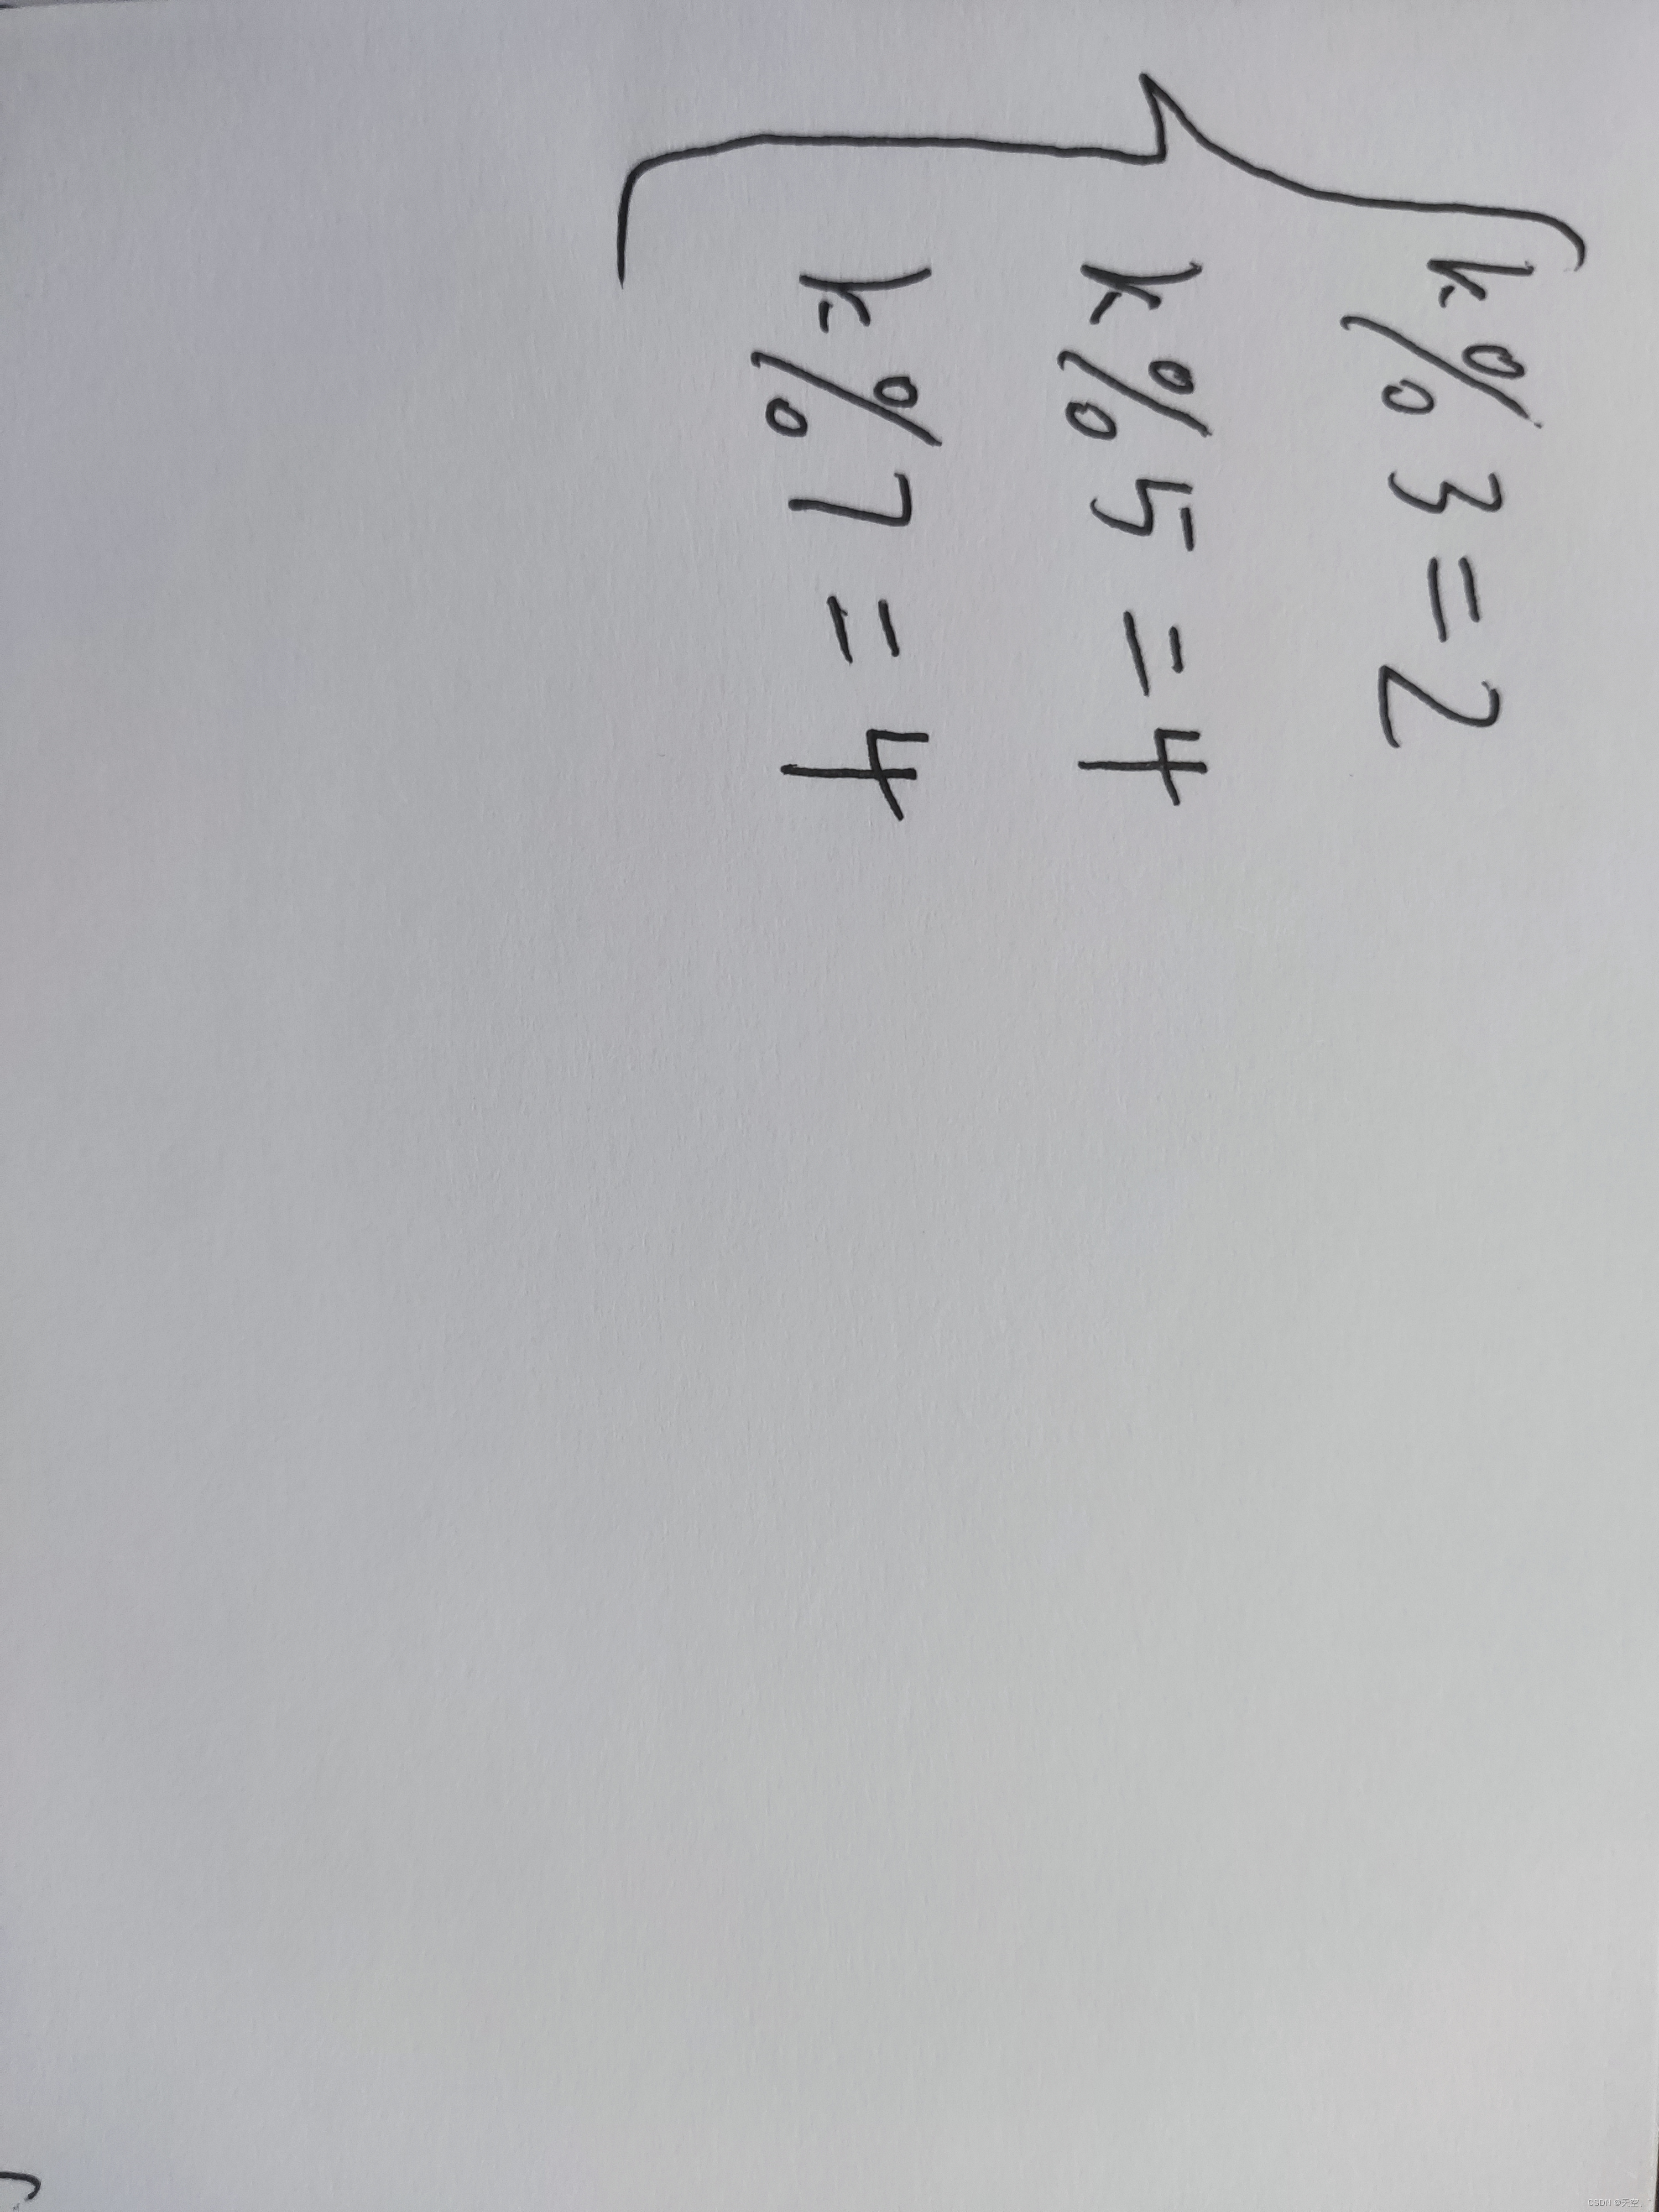 k%3=2
k%5=4
k%7=4
CSDN @天空、